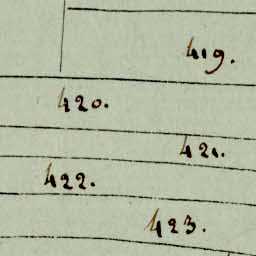 419.
420.
421.
422.
423.